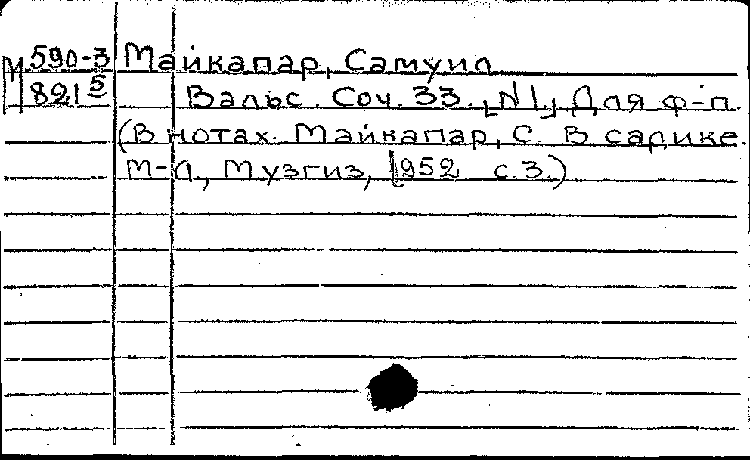 М 590-3 Майкапар, Самуил
821 5 Вальс. Соч. 33. [N1] Для ф-п.
(В нотах: Майкапар, С. В садике.
М-Л., Музгиз, 1952 с.3.)